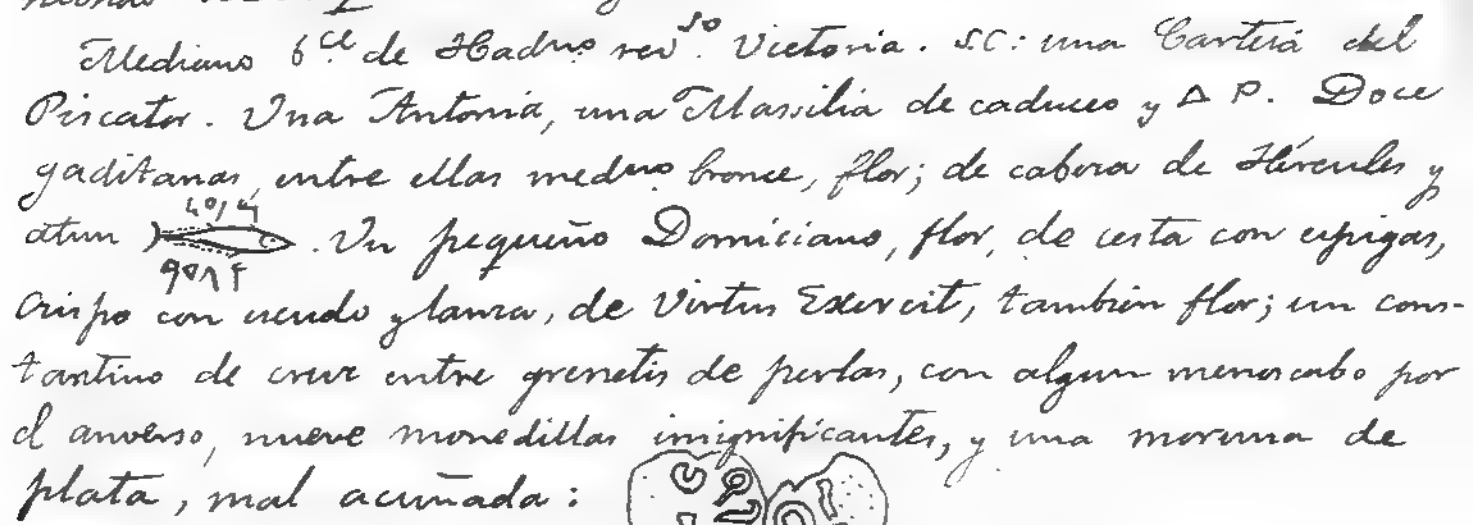 Mediano b.ce de Hadno rev.so Victoria. S.C: una Carteia del
Piscator. Una Antonia, una Massilia de caduceo y Δ P. Doce
gaditanas, entre ellas medno bronce, flor; de cabeza de Hércules y
atun . Un pequeño Domiciano, flor, de cesta con espigas,
Crispo con escudo y lanza, de Virtus Exercit, tambien flor; un cons-
tantino de cruz entre grenetis de perlas, con algun menoscabo por
el anverso, nueve monedillas insignificantes, y una moruna de
plata, mal acuñada: